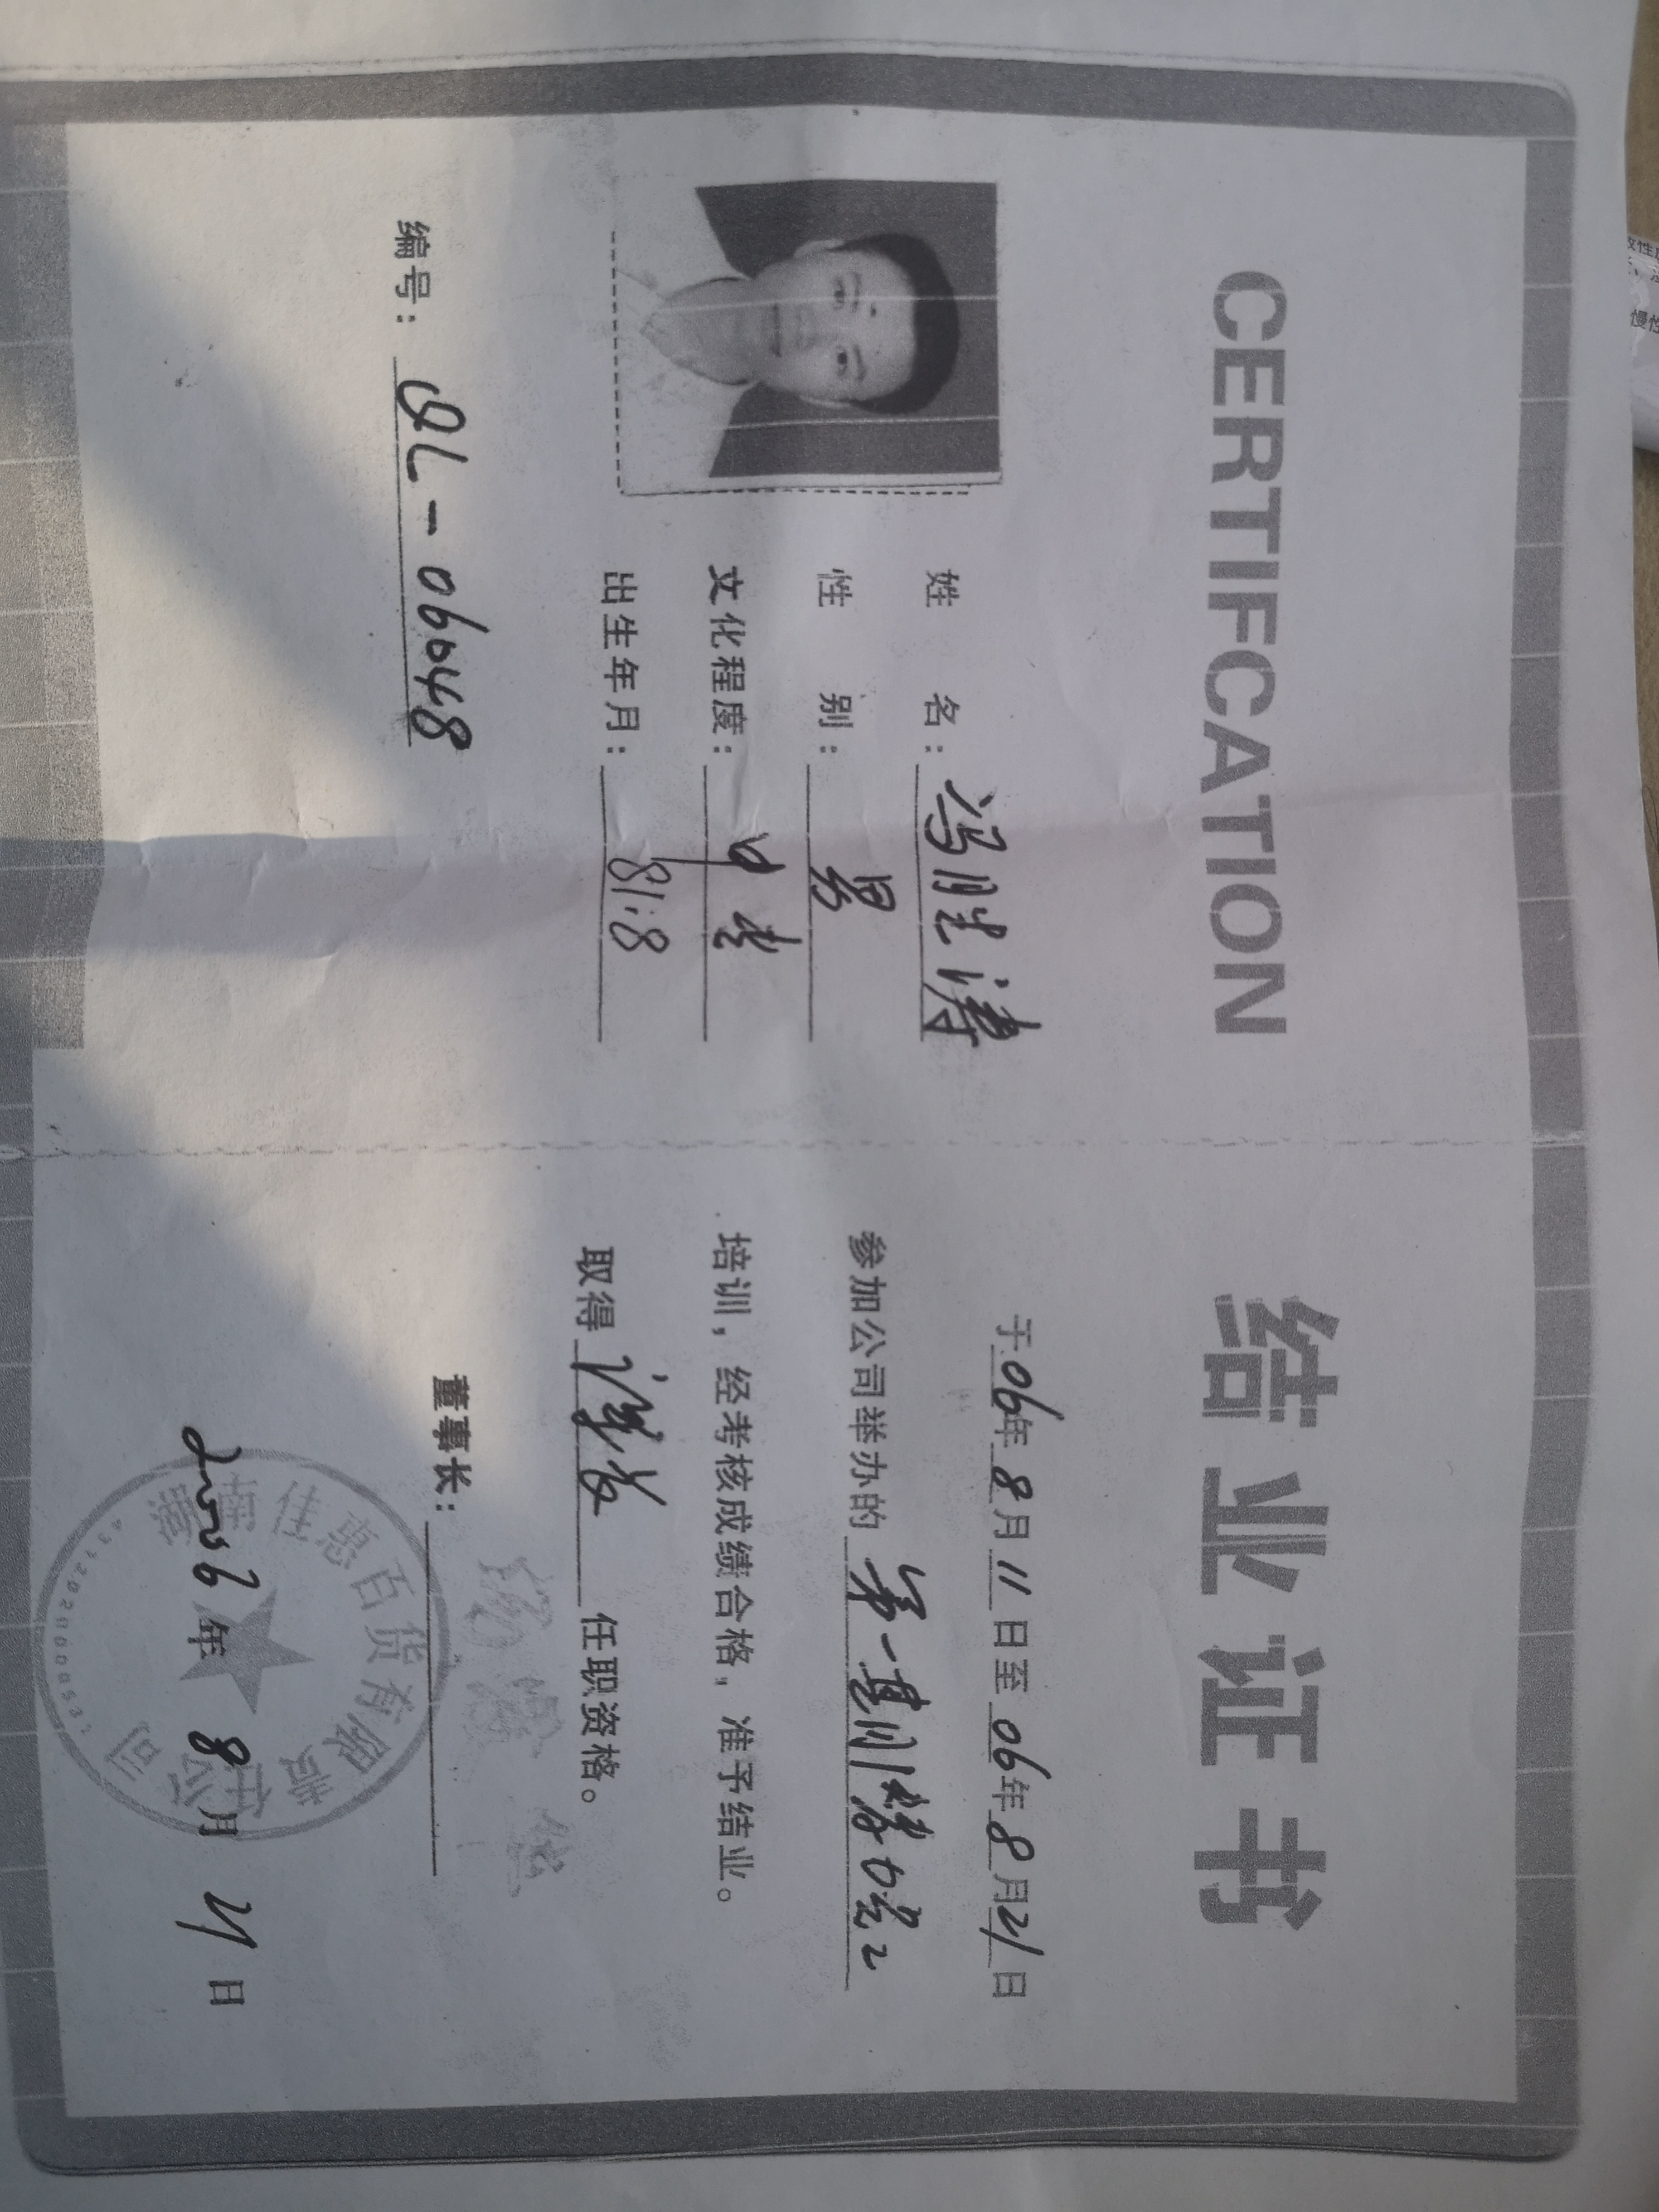 CERTIFCATION
姓 名：冯胜涛
性 别：男
文化程度：中专
出生年月：81.8
编号：QL-06048
结业证书
于06年8月11日至06年8月21日
参加公司举办的第一期
培训，经考核成绩合格，准予结业。
取得 任职资格。
董事长：
2006年8月21日
湖南佳惠百货有限责任公司
慢性